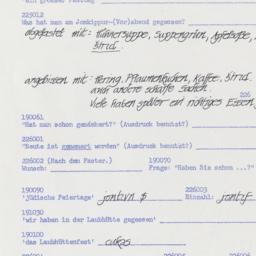 229012
Was hat man am Jomkippur-(Vor)abend gegessen?
abgefastet mit: Hühnersuppe, Suppengrün, Apfelsaft,
Brot
angebissen mit: Hering, Pflaumenkuchen, Kaffee, Brot
und andere scharfe Sachen.
226
Viele haben später ein richtiges Essen
190061
"Hat man schon gemeckert?" (Ausdruck benutzt?)
226001
"Heute ist worden" (Ausdruck benutzt?)
226002 (Nach dem Fasten.) 190070
Wunsch: Frage: "Haben Sie schon ...?"
190090 226003
'jüdische Feiertage' jontivn $ Einzahl: jontif
191030
'wir haben in der Laubhütte gegessen'
190100
'das Laubhüttenfest' cukes